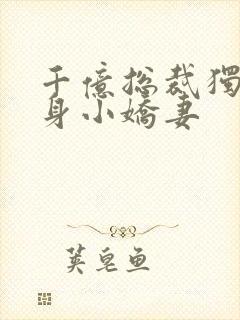 千億總裁獨
身小嬌妻
莢皂魚